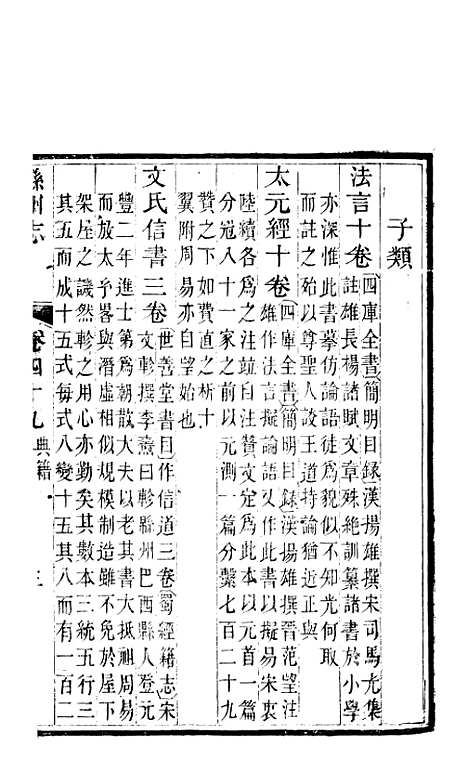 子類
法言十卷四庫全書簡明目録漢揚雄撰宋司馬光集
註雄長楊諸賦文章殊絶訓纂諸書於小學
亦深惟此書摹仿論語徒貌似不知光何取
而註之殆以尊聖人談王道持論猶近正與
太元經十卷四庫全書簡明目錄漢揚雄撰晉范望注
雄作法言擬論語又作此以擬易宋衷
陸續各爲之注望自注贊文定爲此本以元首一篇
分冠八十一家之前以元測一篇分繫七百二十九
贊之下如費直之析十
翼附周易亦自望始也
文氏信書三卷世善堂書目作信道三卷蜀經籍志宋
文軫撰李燾曰軫縣州巴西縣人登元
豐二年進士第爲朝散大夫以老其書大抵祖周易
而放太元畧與潛虛相似規模制造雖不免於屋下
架屋之譏然軫之用心亦勤矣其數本三統五行三
其五而成十五式每式八變十五其八而有一百二
緜州志
卷四十九典籍
三